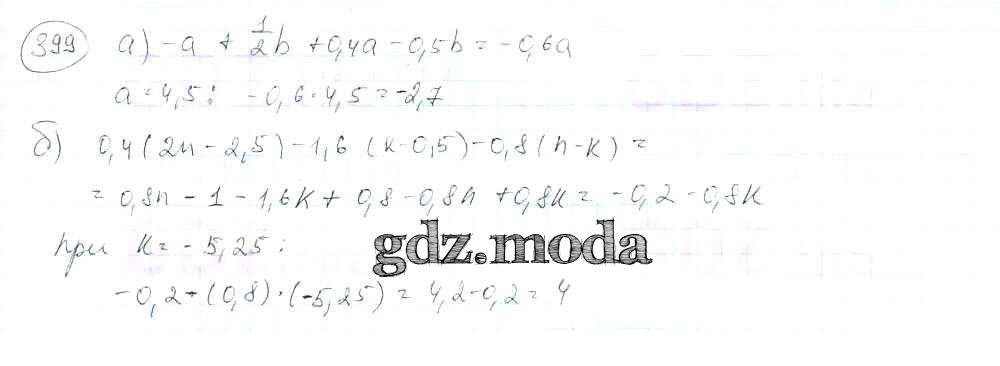 399 а) -a + 1/2 b + 0,4a - 0,5b = -0,6a
a = 4,5: -0,6 · 4,5 = -2,7
б) 0,4(2n - 2,5) - 1,6 (k - 0,5) - 0,8(n - k) =
= 0,8n - 1 - 1,6k + 0,8 - 0,8n + 0,8k = -0,2 - 0,8k
при k = -5,25:
gdz.moda
-0,2 - (0,8) · (-5,25) = 4,2 - 0,2 = 4